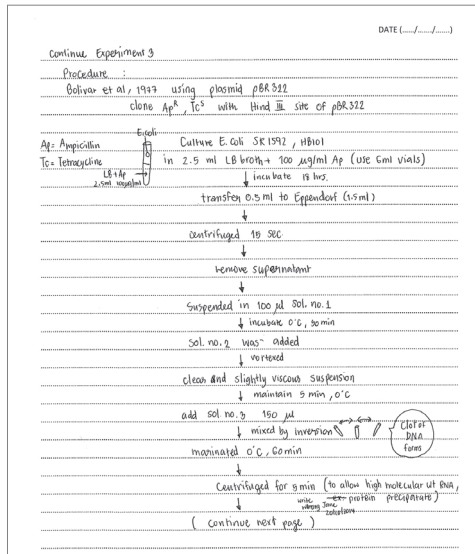 DATE (....../....../......)
Continue Experiment 3
Procedure :
Bolivar et al, 1977 using plasmid pBR322
clone Ap^R, Tc^S with Hind III site of pBR322
E.coli
Ap = Ampicillin
Tc = Tetracycline
LB+Ap
2.5ml 100µg/ml
Culture E. Coli SK1592, HB101
in 2.5 ml LB broth + 100 µg/ml Ap (use 6ml vials)
↓ incubate 18 hrs.
transfer 0.5 ml to Eppendorf (1.5ml)
↓
centrifuged 15 sec.
↓
remove supernatant
↓
Suspended in 100 µl Sol. no. 1
↓ incubate 0°C, 30 min
Sol. no. 2 was added
↓ vortexed
clear and slightly viscous suspension
↓ maintain 5 min, 0°C
add sol. no. 3 150 µl
↓ mixed by inversion
Clot of
DNA
forms
marinated 0°C, 60 min
↓
Centrifuged for 5 min (to allow high molecular wt RNA,
protein precipatate)
write
wrong Jane
↓
( continue next page )